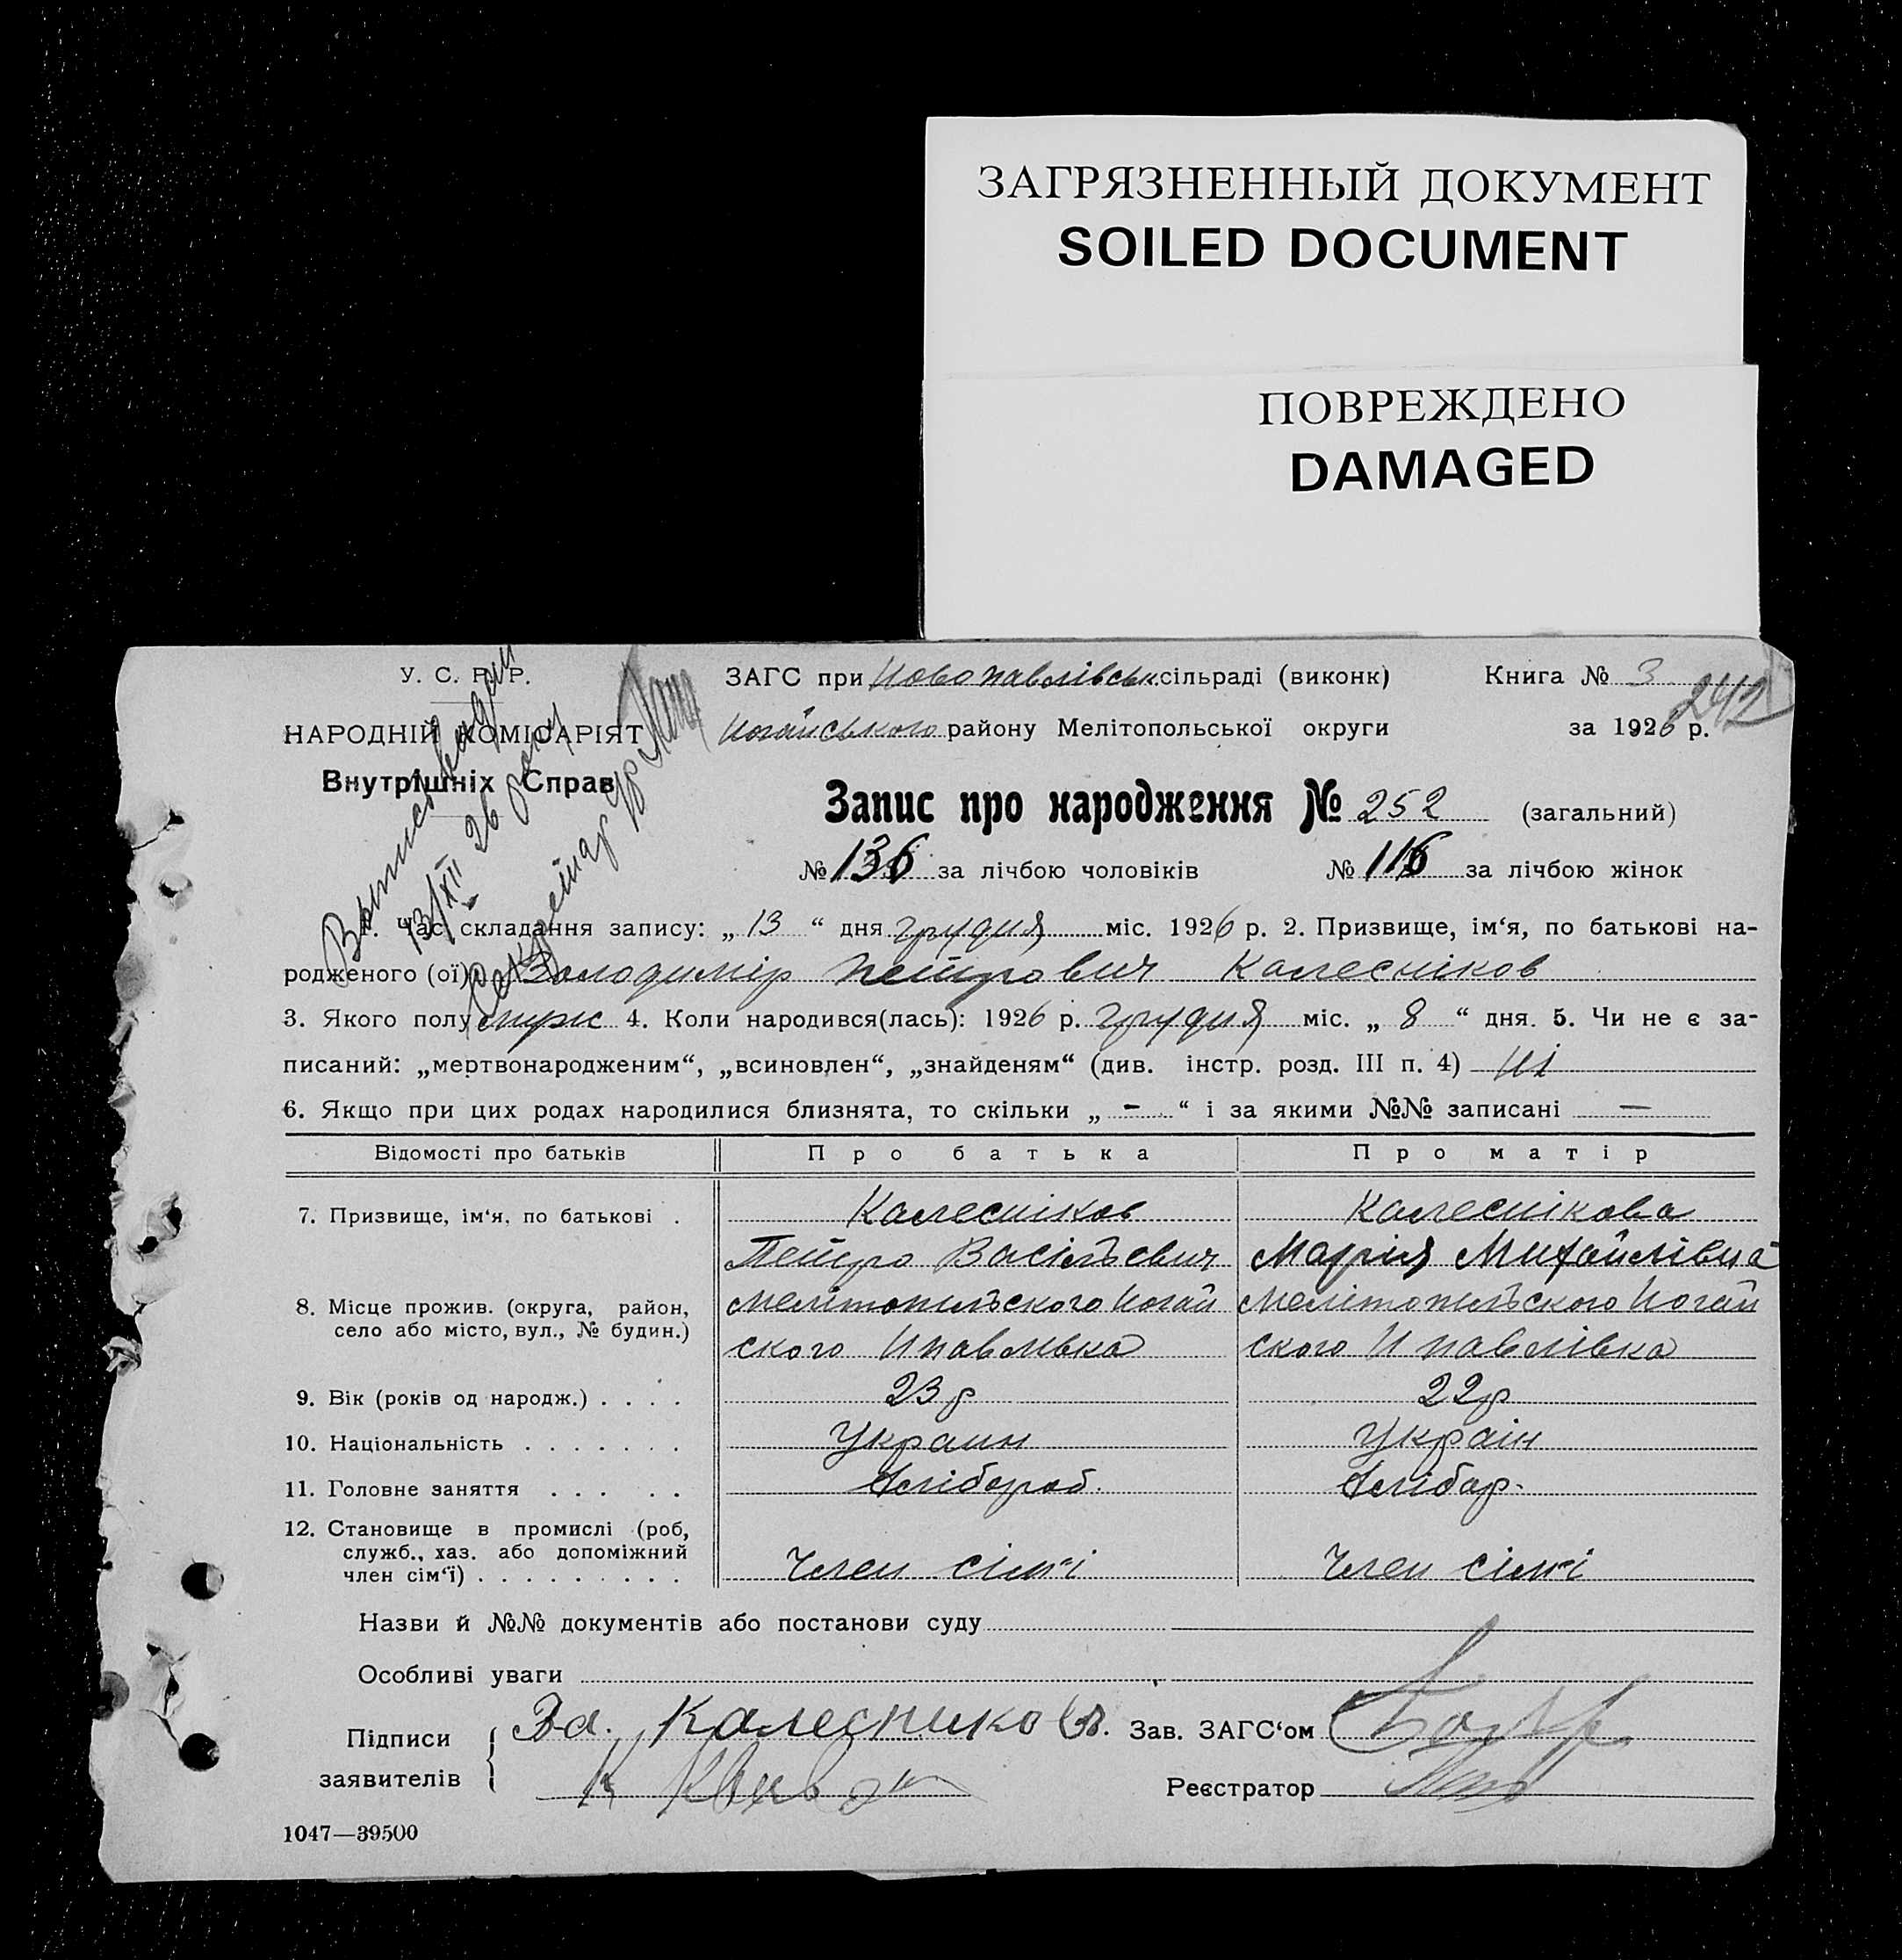 ЗАГРЯЗНЕННЫЙ ДОКУМЕНТ
SOILED DOCUMENT
ПОВРЕЖДЕНО
DAMAGED
У. С. Р. Р.
НАРОДНІЙ КОМІСАРІЯТ
Внутрішніх Справ
ЗАГС при Новопавлівськ. сільраді (виконк)
Ногайського району Мелітопольської округи
Книга № 3
242
за 1926 р.
Запис про народження № 252 (загальний)
№ 136 за лічбою чоловіків № 116 за лічбою жінок
13/XII 26 року
Секретар
1. Час складання запису: „ 13 “ дня грудня міс. 1926 р. 2. Призвище, ім‘я, по батькові на-
родженого (ої) Володимір Петрович Калесніков
3. Якого полу муж 4. Коли народився(лась): 1926 р. грудня міс. „ 8 “ дня. 5. Чи не є за-
писаний: „мертвонародженим“, „всиновлен“, „знайденям“ (див. інстр. розд. III п. 4) ні
6. Якщо при цих родах народилися близнята, то скільки „ - “ і за якими №№ записані —
Відомості про батьків Про батька Про матір
7. Призвище, ім‘я, по батькові . Калесніков Калеснікова
Петро Васільевич Марія Михайлівна
8. Місце прожив. (округа, район, Мелітопильского Ногай Мелітопильского Ногай
село або місто, вул., № будин.) ского Н павлівка ского Н павлівка
9. Вік (років од народж.) . . . . 23 р 22 р
10. Національність . . . . . . . Украин Україн
11. Головне заняття . . . . . Хлібороб. Хлібор.
12. Становище в промислі (роб,
служб., хаз. або допоміжний
член сім‘ї) . . . . . . . . . Член сім'і Член сім'і
Назви й №№ документів або постанови суду
Особливі уваги
Підписи
заявителів
За. Калеснико
Зав. ЗАГС‘ом
Реєстратор
1047—39500